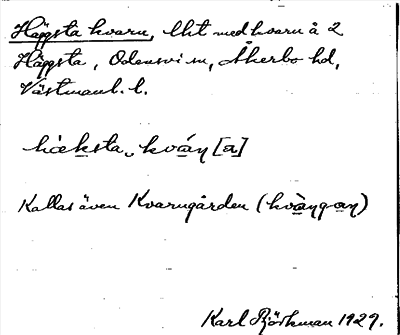 Häggsta kvarn, lht med kvarn å 2
Häggsta, Odensvi sn, Åkerbo hd,
Västmanl. l.
hὰeksta, kvάη [a]
Kallas även Kvarngården (kvὰηgaη)
Karl Björkman 1929.